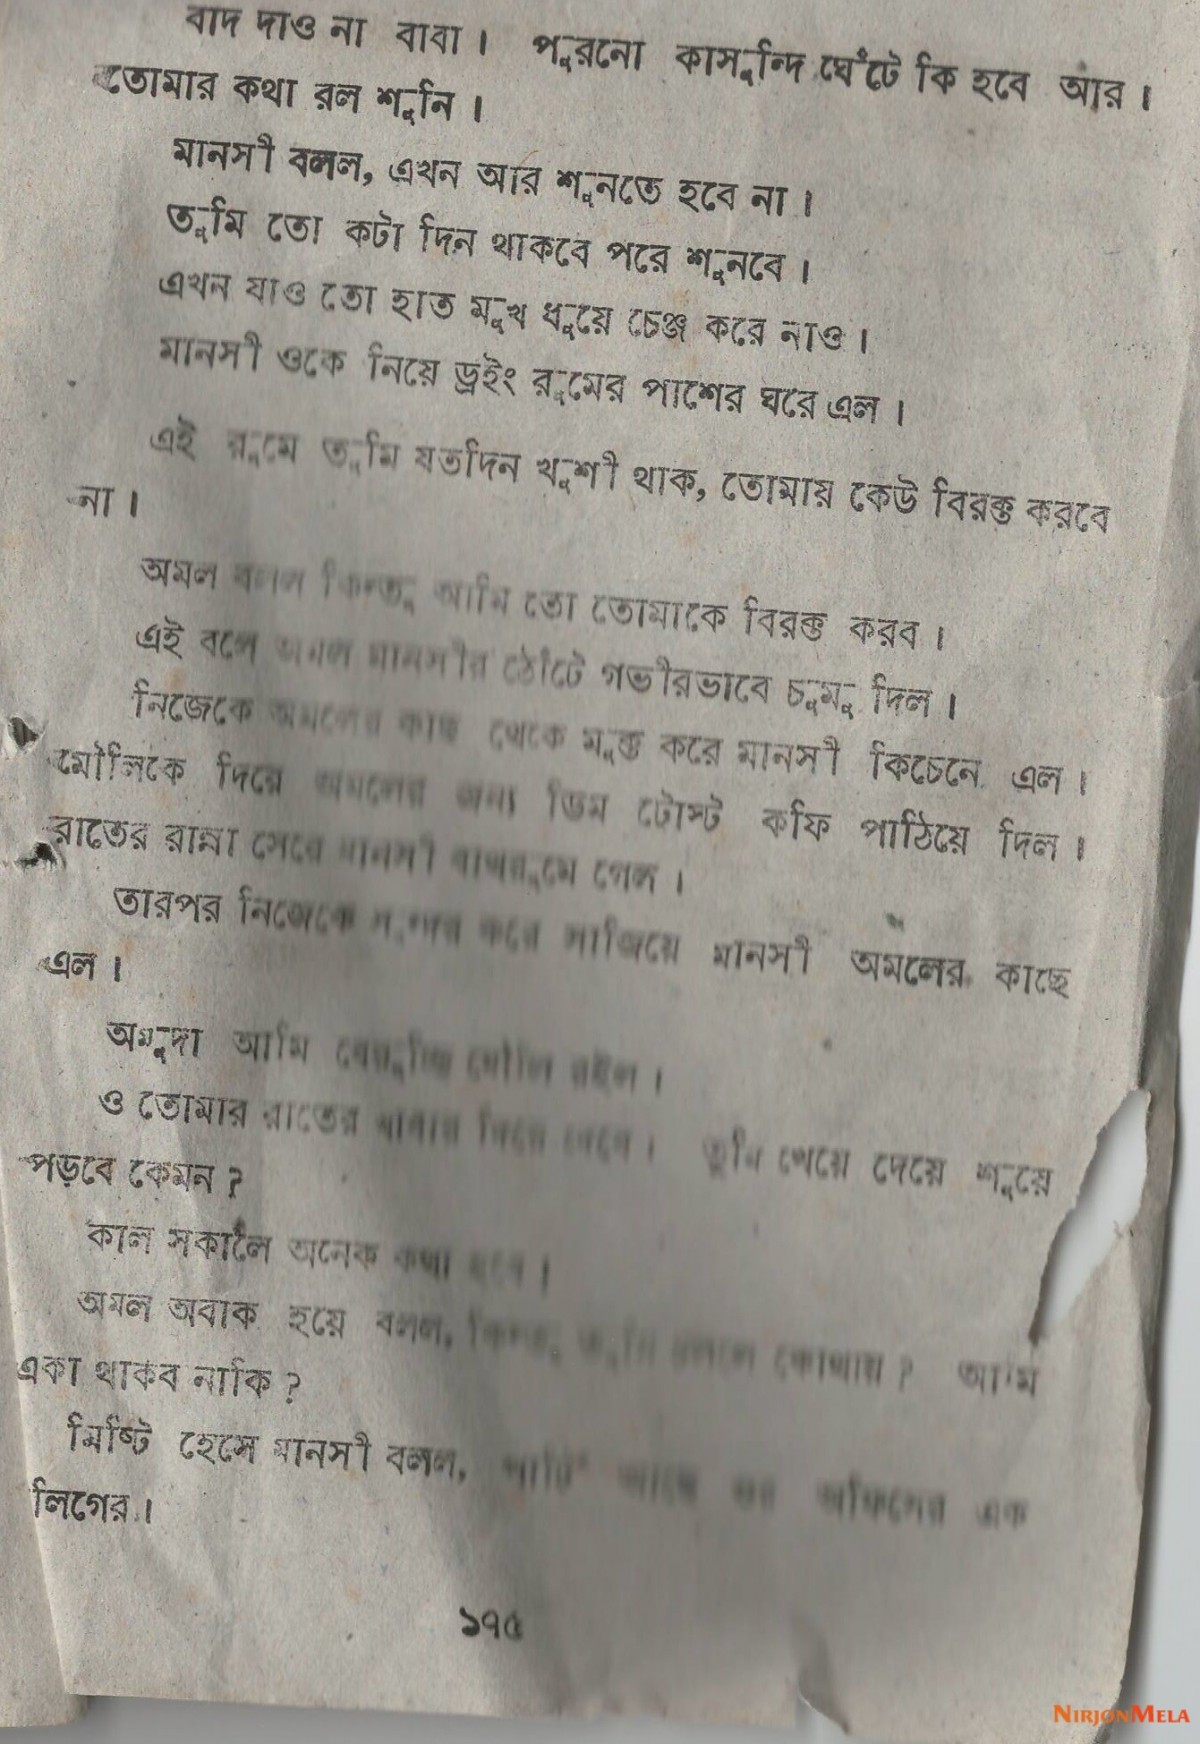 বাদ দাও না বাবা। পুরনো কাসুন্দি ঘেঁটে কি হবে আর।
তোমার কথা রল শুনি।
মানসী বলল, এখন আর শুনতে হবে না।
তুমি তো কটা দিন থাকবে পরে শুনবে।
এখন যাও তো হাত মুখ ধুয়ে চেঞ্জ করে নাও।
মানসী ওকে নিয়ে ড্রইং রুমের পাশের ঘরে এল।
এই রুমে তুমি যতদিন খুশী থাক, তোমায় কেউ বিরক্ত করবে
না।
অমল বলল কিন্তু আমি তো তোমাকে বিরক্ত করব।
এই বলে অমল মানসীর ঠোঁটে গভীরভাবে চুমু দিল।
নিজেকে অমলের কাছ থেকে মুক্ত করে মানসী কিচেনে এল।
মৌলিকে দিয়ে অমলের জন্য ডিম টোস্ট কফি পাঠিয়ে দিল।
রাতের রান্না সেরে মানসী বাথরুমে গেল।
তারপর নিজেকে সুন্দর করে সাজিয়ে মানসী অমলের কাছে
এল।
অমুদা আমি বেরুচ্ছি মৌলি রইল।
ও তোমার রাতের খাবার দিয়ে দেবে। তুমি খেয়ে দেয়ে শুয়ে
পড়বে কেমন?
কাল সকালে অনেক কথা হবে।
অমল অবাক হয়ে বলল, কিন্তু তুমি চললে কোথায়? আমি
একা থাকব নাকি?
মিষ্টি হেসে মানসী বলল, পার্টি আছে ওর অফিসের এক
লিগের।
১৭৫
NIRJONMELA